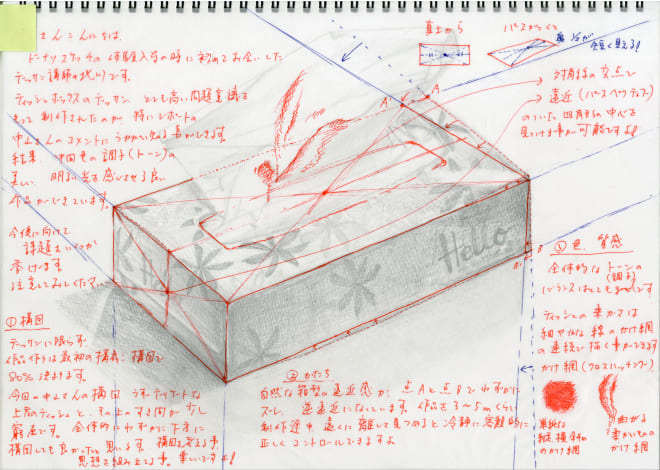 さんこんにちは、
ドーナツスケッチの体験入学の時に初めてお会いした
デッサン講師の北川です。
ティッシュボックスのデッサン とても高い問題意識を
もって制作されたのが 特にレポートの
中 さんのコメントにうかがい知る事ができます。
結果、中間色の調子(トーン)の
美しい 明るい光を感じさせる良い
作品ができています。
今後に向けて
課題をいくつか
挙げます
注意してみてください。
①構図
デッサンに限らず
作品作りは最初の構素、構図で
80%決まります。
今回の中 さんの構図
上 のティッシュと、その上のすき間が少し
窮屈です。全体的にわずかに下方に
構図しても良かったと思います。構図を考える事、
思想を組み立てる事。楽しいですよ!
真上から
パースがつくと
短く見える!
対角線の交点で
遠近(パースペクティブ)
のついた四角形の中心を
見つける事が可能ですよ!
A'
A
Hello
B
B'
②かたち
自然な箱型の遠近感が、点Aと点Bでわずかに
ズレ、逆遠近になっています。作品を3〜5mくらい
制作途中 遠くに離して見つめると冷静に客観的に
正しくコントロールできますよ
③色、質感
全体的なトーンの
(調子)
バランスはとてもgoodです
ティッシュの柔かさは
細やかな線のかけ網
の連続で描く事ができます
かけ網(クロスハッチング)
単純な
縦、横、斜め
のかけ網
曲がる
柔かいもの
のかけ網